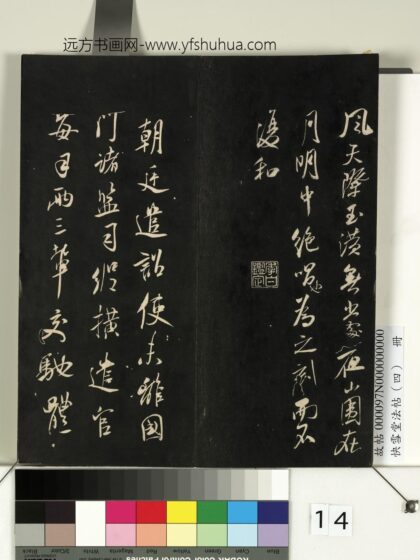 远方书画网-www.yfshuhua.com
風天際玉潢無處夜山圍在
月明中絕唱為之而不
復和
朝廷遣詔使未離國
門諸監司縱橫遣官
每日兩三輩交馳體
故帖000097N000000000
快雪堂法帖（四） 冊
14